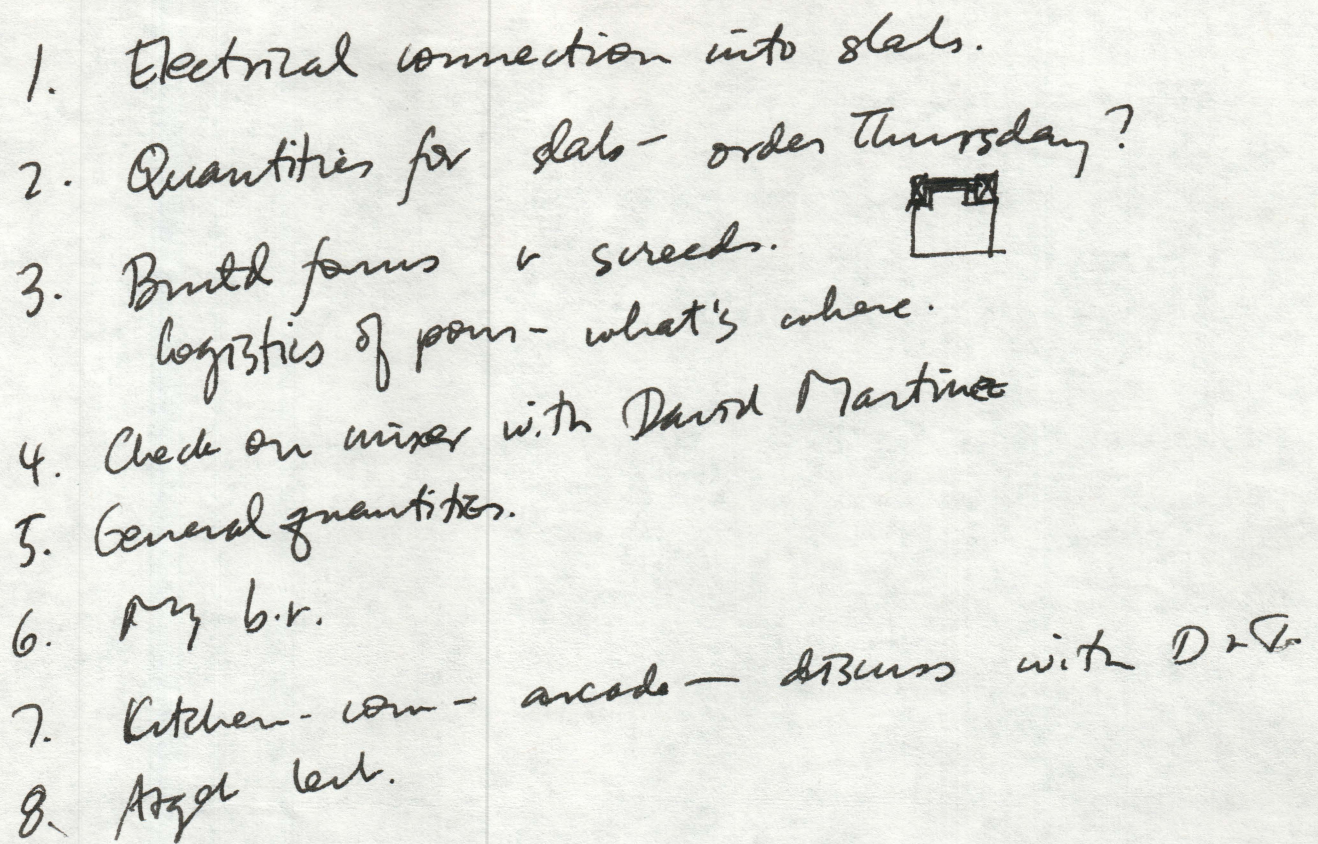 1. Electrical connection into slab.
2. Quantities for slab- order Thursday?
3. Build forms & screeds.
logistics of pour- what's where.
4. Check on mixer with David Martinez
5. General quantities.
6. My b.r.
7. Kitchen- com- arcade- discuss with D
8.